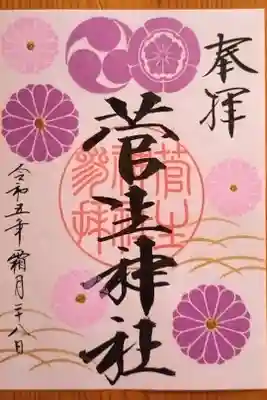 奉拝
菅生神社
令和五年 霜月二十八日
菅生